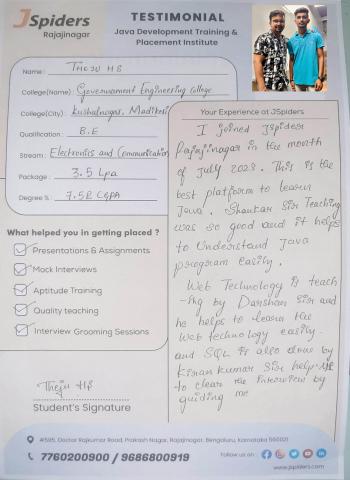 JSpiders
Rajajinagar
TESTIMONIAL
Java Development Training &
Placement Institute
Name : Theju HS
College(Name) : Government Engineering College
College(City) : Kushalnagar, Madikeri
Qualification : B.E
Stream : Electronics and Communication
Package : 3.5 Lpa
Degree % : 7.52 CGPA
What helped you in getting placed ?
Presentations & Assignments
Mock Interviews
Aptitude Training
Quality teaching
Interview Grooming Sessions
Theju HS
Student's Signature
Your Experience at JSpiders
I joined JSpiders
Rajajinagar in the month
of July 2023. This is the
best platform to learn
Java. Shankar Sir Teaching
was so good and it helps
to Understand Java
program easily.
Web Technology is teach
-ing by Darshan Sir and
he helps to learn the
Web technology easily.
and SQL is also done by
Kiran kumar Sir help me
to clear the Interview by
guiding me
#595, Doctor Rajkumar Road, Prakash Nagar, Rajajinagar, Bengaluru, Karnataka 560021
7760200900 / 9686800919
Follow us on :
www.jspiders.com